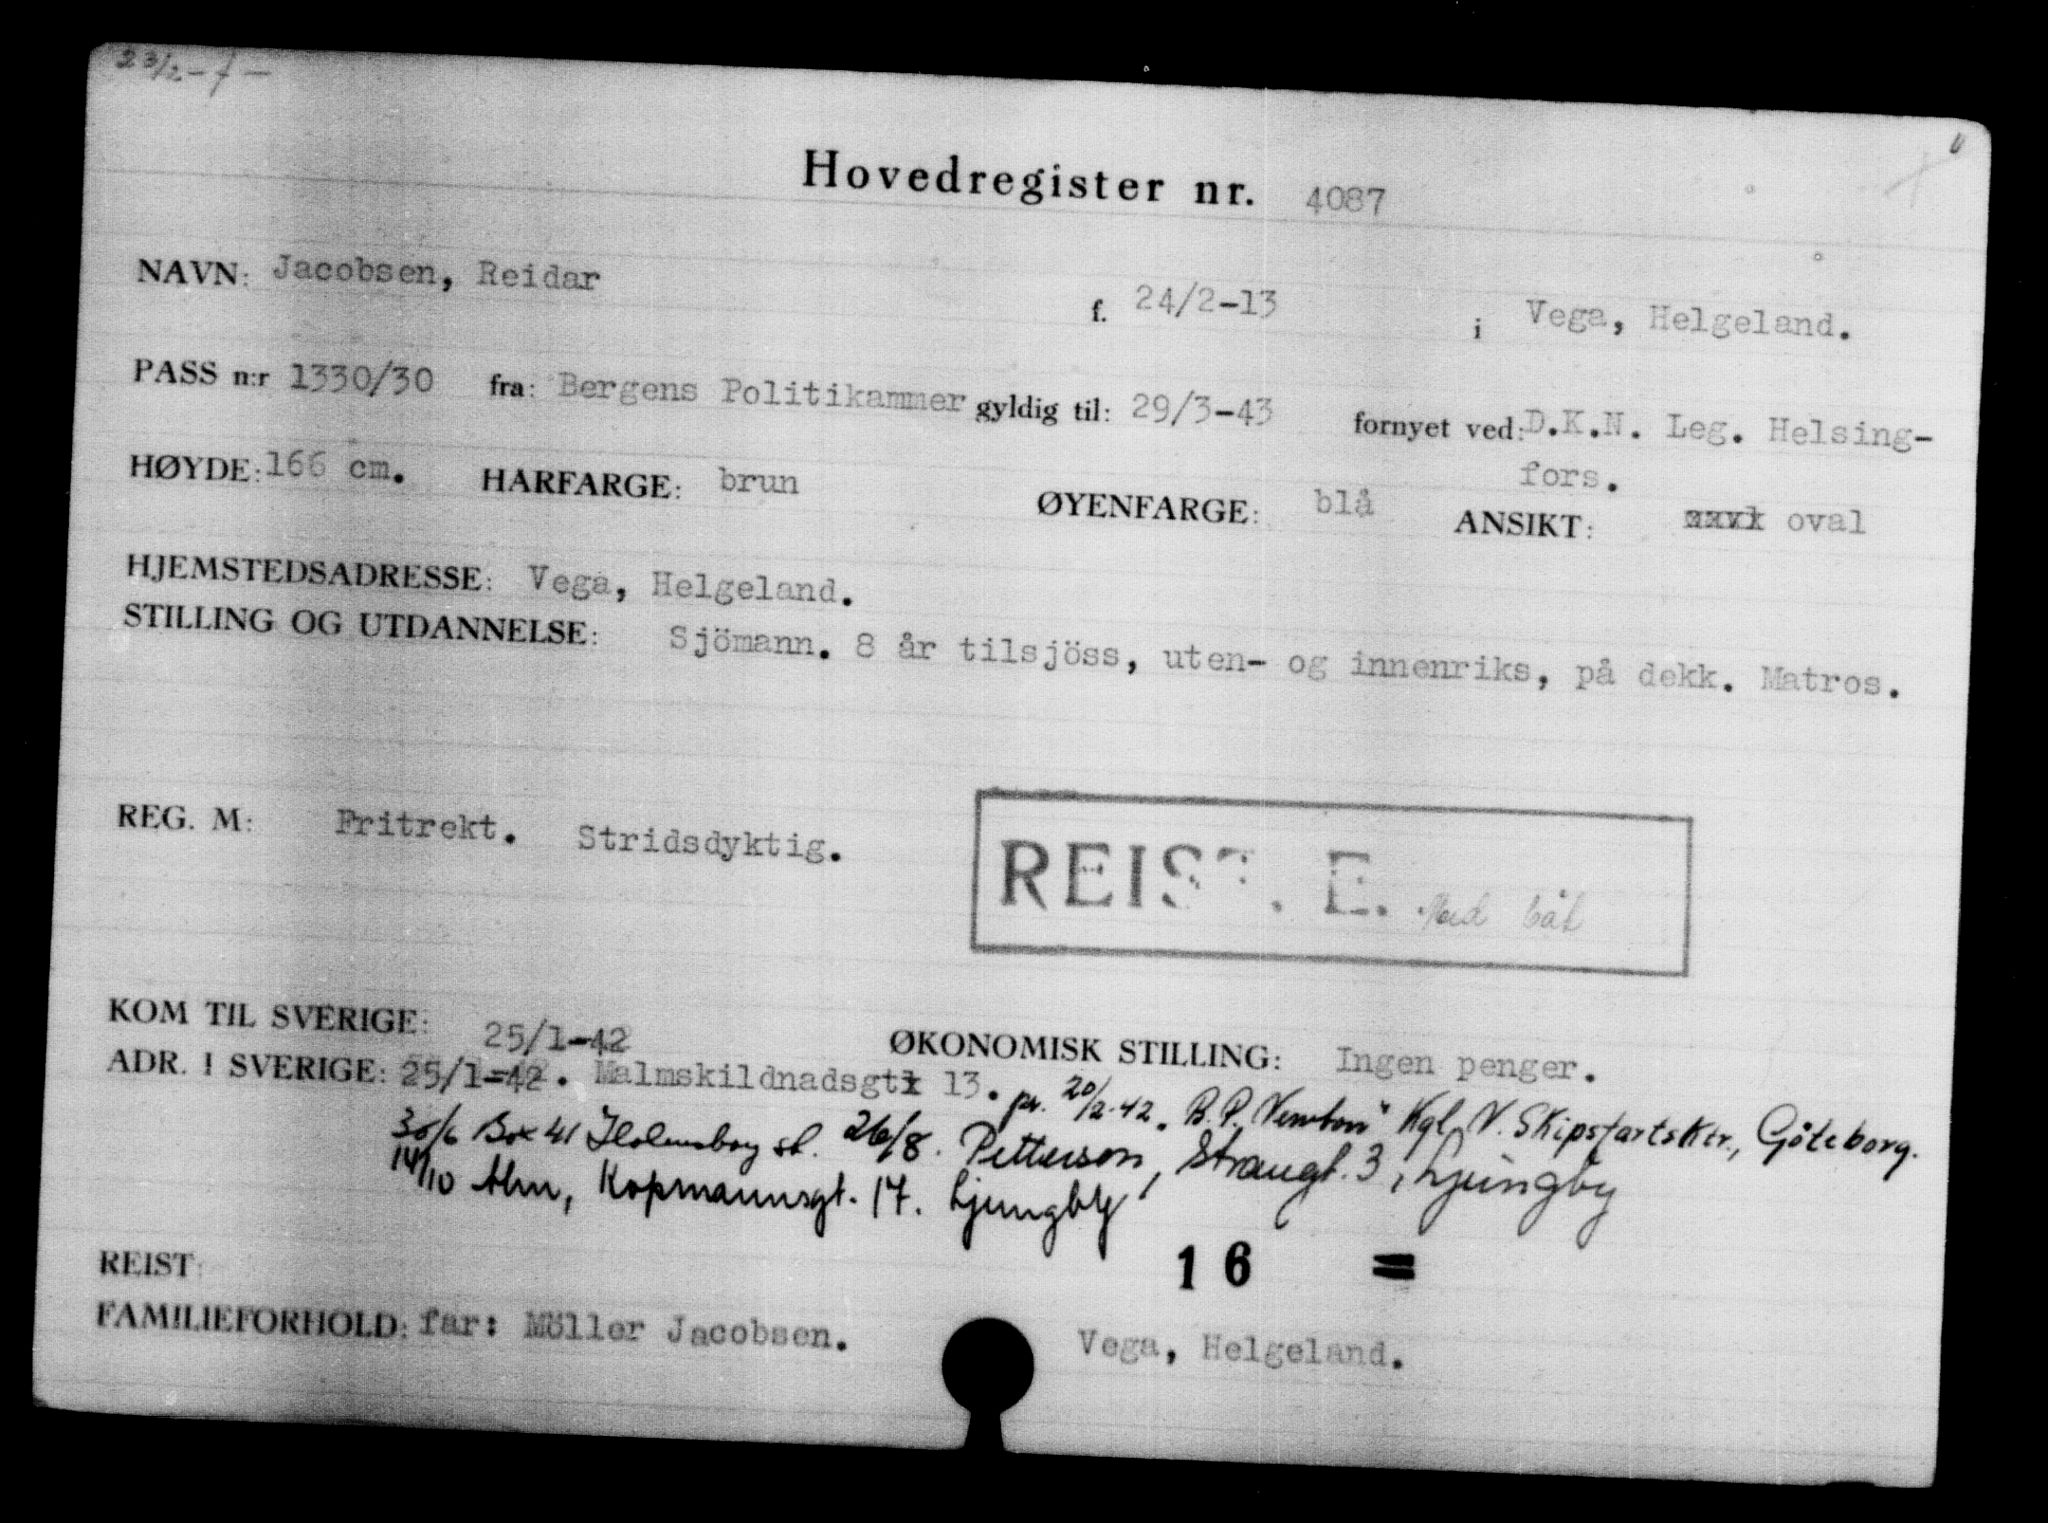 23/2 - 7 -
Hovedregister nr. 4087
NAVN: Jacobsen, Reidar f. 24/2-13 i Vega, Helgeland.
PASS n:r 1330/30 fra: Bergens Politikammer gyldig til: 29/3-43 fornyet ved: D.K.N. Leg. Helsing-
fors.
HØYDE: 166 cm. HARFARGE: brun ØYENFARGE: blå ANSIKT: oval
HJEMSTEDSADRESSE: Vega, Helgeland.
STILLING OG UTDANNELSE: Sjömann. 8 år tilsjöss, uten- og innenriks, på dekk. Matros.
REG. M: Fritrekt. Stridsdyktig.
REIST. E. Med båt
KOM TIL SVERIGE: 25/1-42 ØKONOMISK STILLING: Ingen penger.
ADR. I SVERIGE: 25/1-42. Malmskildnadsgt 13. pr. 20/2-42. B.P. Kgl. N. Skipsfartsktr., Göteborg.
30/6 Box 41 st. 26/8. Petterson, Strangt. 3, Ljungby
14/10 Alm, Kopmannsgt. 17. Ljungby
16 =
REIST:
FAMILIEFORHOLD: far: Möller Jacobsen. Vega, Helgeland.